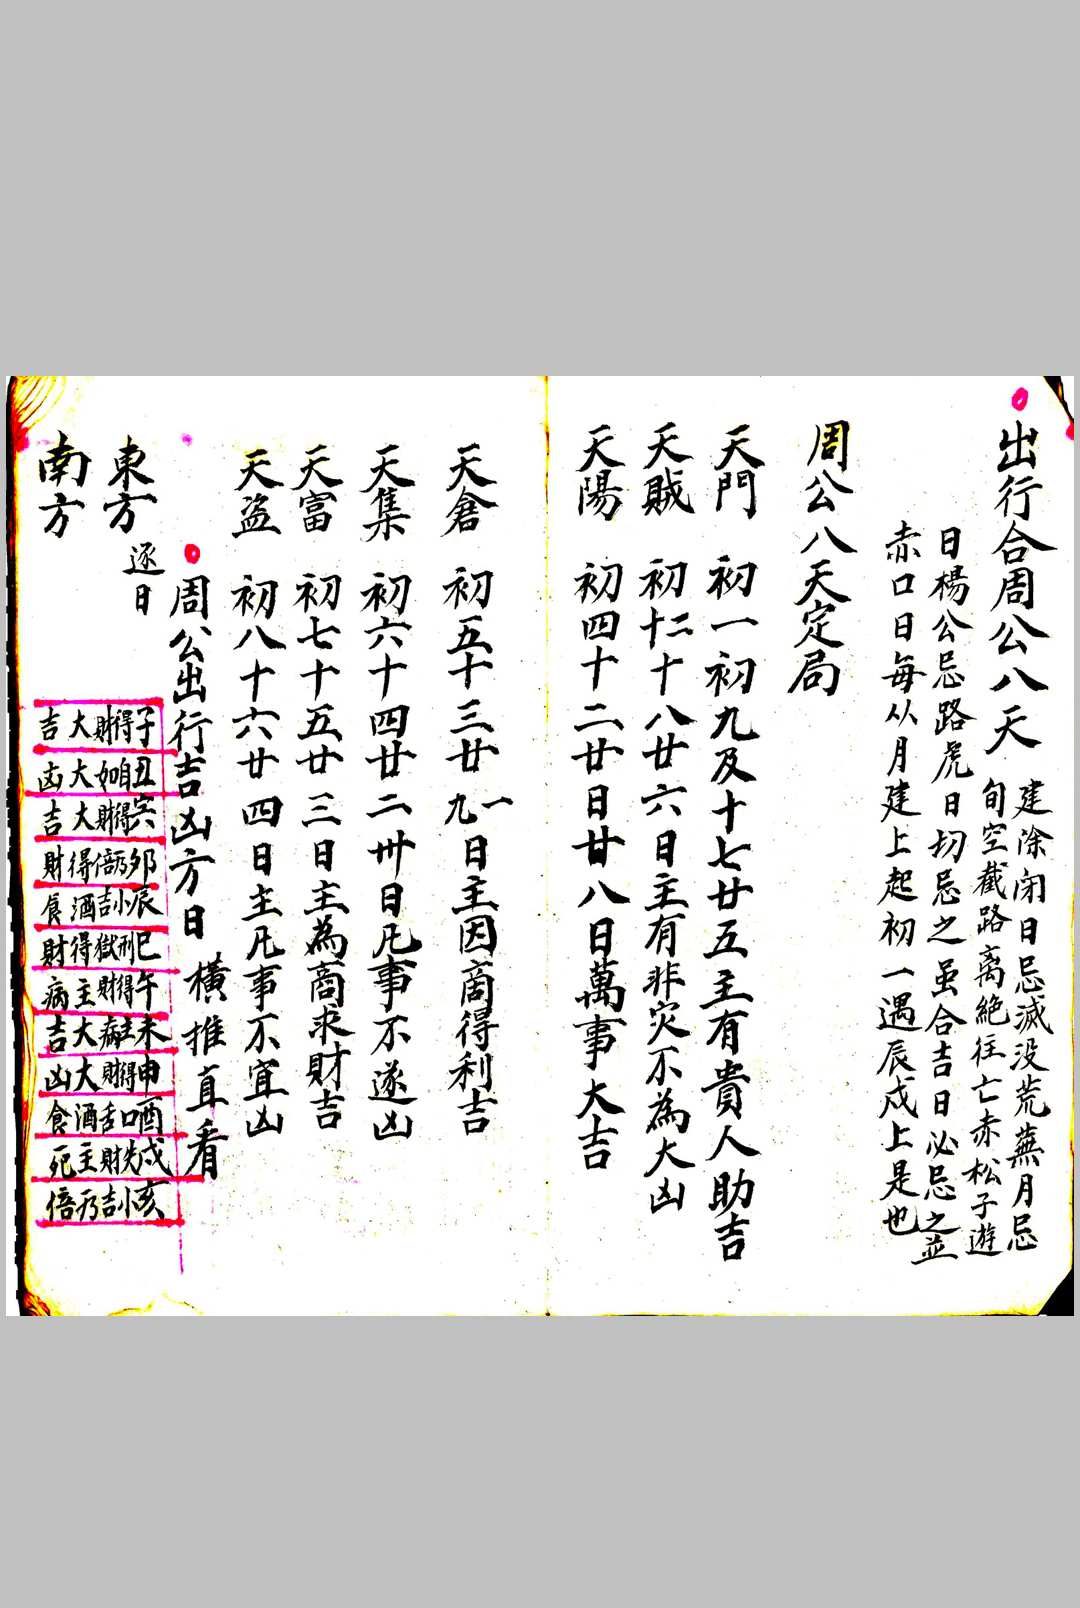 出行合周公八天
建除闭日忌滅没荒蕪月忌
旬空截路离絶往亡赤松子遊
日楊公忌路虎日切忌之虽合吉日必忌之並
赤口日每从月建上起初一遇辰戌上是也
周公八天定局
天門 初一初九及十七廿五主有貴人助吉
天賊 初二十十八廿六日主有非灾不為大凶
天陽 初四十二廿日廿八日萬事大吉
天倉 初五十三廿一九日主因商得利吉
天集 初六十四廿二卅日凡事不遂凶
天富 初七十五廿三日主為商求財吉
天盗 初八十六廿四日主凡事不宜凶
周公出行吉凶方日 橫推直看
逐日
子 丑 寅 卯 辰 巳 午 未 申 酉 戌 亥
東方 得財 自如 得財 乃倍 小吉 刑獄 得財 主病 得財 口舌 失財 小吉
南方 大吉 大凶 大吉 得財 酒食 得財 主病 大吉 大凶 酒食 主死 乃倍